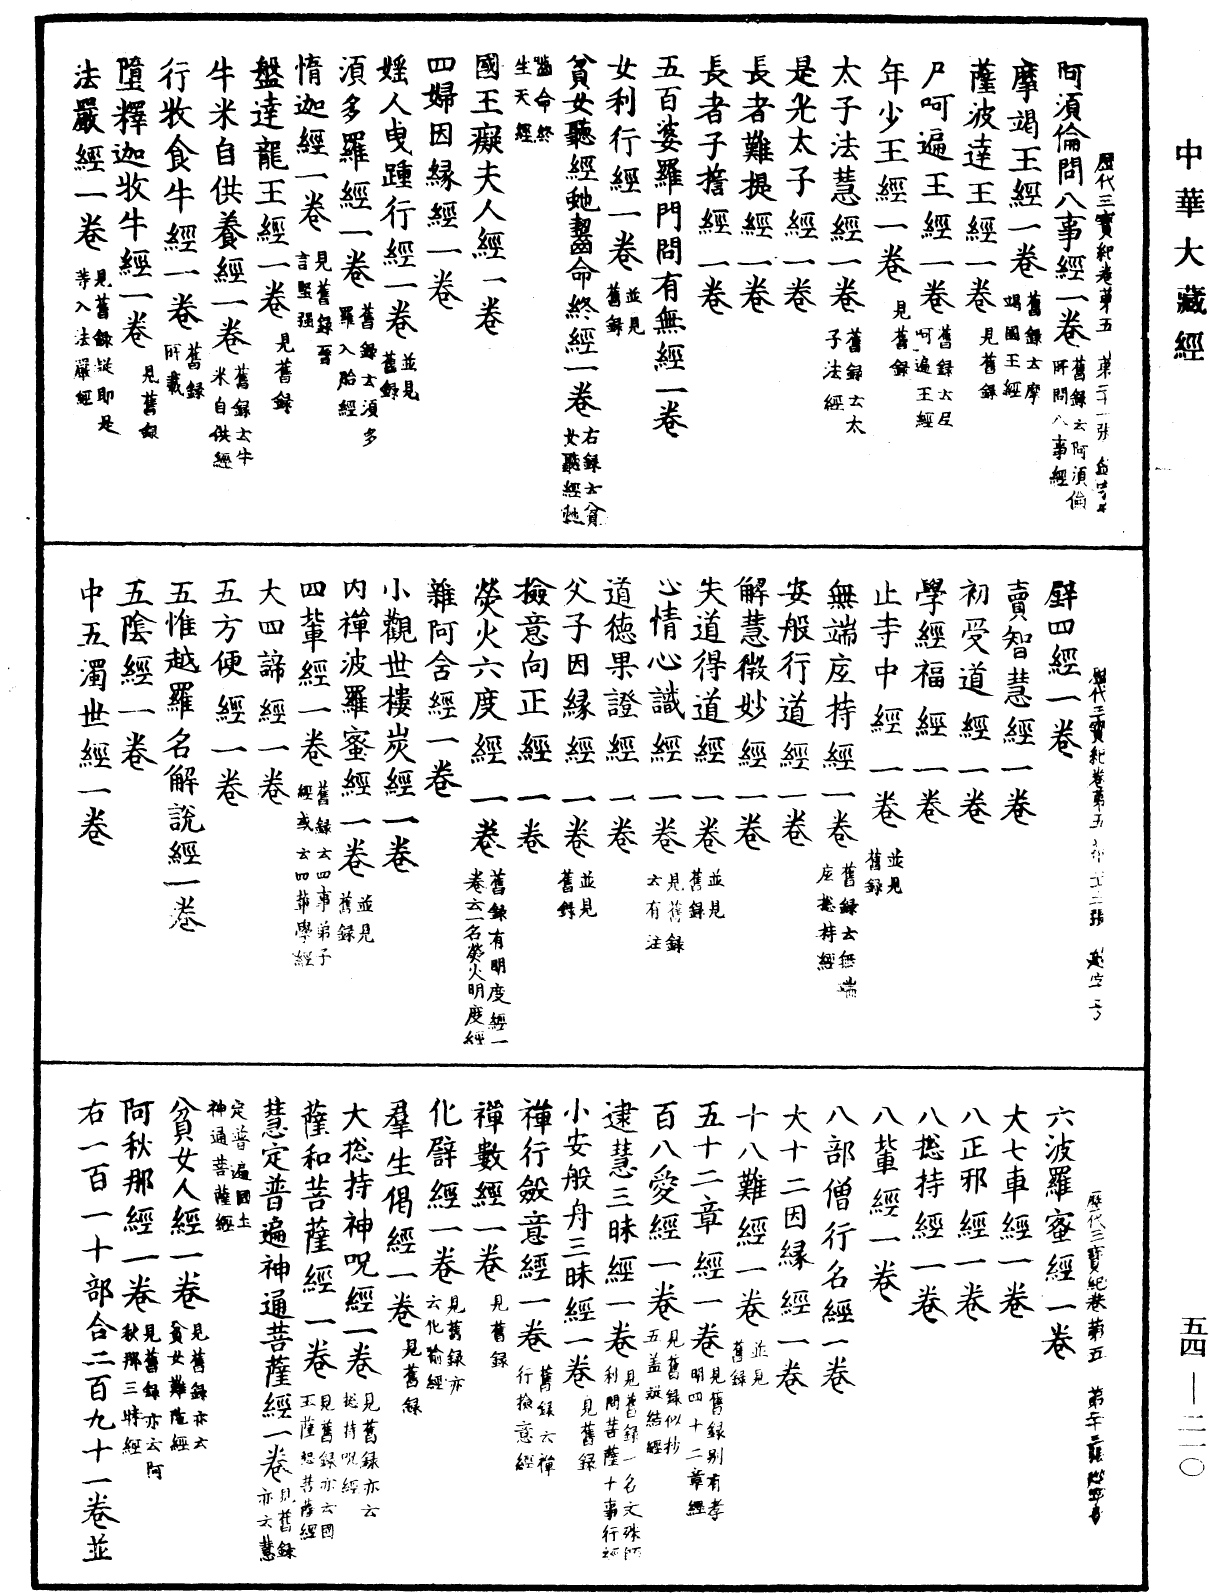 中華大藏經
歷代三寶紀卷第五
阿須倫問八事經一卷 舊錄云阿須倫所問八事經
摩竭王經一卷 舊錄云摩竭國王經
薩波達王經一卷 見舊錄
尸呵遍王經一卷 舊錄云尸呵遍王經
年少王經一卷 見舊錄
太子法慧經一卷 舊錄云太子法經
是光太子經一卷
長者難提經一卷
長者子誓經一卷
五百婆羅門問有無經一卷
女利行經一卷 並見舊錄
貧女聽經虵齧命終經一卷 右錄云貧女聽經虵
齧命終生天經
國王癡夫人經一卷
四婦因緣經一卷
婬人曳踵行經一卷 並見舊錄
須多羅經一卷 舊錄云須多羅入胎經
惰迦經一卷 見舊錄晉言堅强
盤達龍王經一卷 見舊錄
牛米自供養經一卷 舊錄云牛米自供經
行牧食牛經一卷 舊錄所載
墮釋迦牧牛經一卷 見舊錄
法嚴經一卷 見舊錄疑即是等入法嚴經
歷代三寶紀卷第五
譬四經一卷
賣智慧經一卷
初受道經一卷
學經福經一卷
止寺中經一卷 並見舊錄
無端底持經一卷 舊錄云無端底揔持經
安般行道經一卷
解慧微妙經一卷
失道得道經一卷 並見舊錄
心情心識經一卷 見舊錄云有注
道德果證經一卷
父子因緣經一卷 並見舊錄
檢意向正經一卷
熒火六度經一卷 舊錄有明度經一卷云一名熒火明度經
雜阿含經一卷
小觀世樓炭經一卷
內禪波羅蜜經一卷 並見舊錄
四輩經一卷 舊錄云四事弟子經或云四輩學經
大四諦經一卷
五方便經一卷
五惟越羅名解說經一卷
五陰經一卷
中五濁世經一卷
歷代三寶紀卷第五
六波羅蜜經一卷
大七車經一卷
八正邪經一卷
八揔持經一卷
八輩經一卷
八部僧行名經一卷
大十二因緣經一卷
十八難經一卷 並見舊錄
五十二章經一卷 見舊錄別有孝明四十二章經
百八愛經一卷 見舊錄似抄五蓋疑結經
逮慧三昧經一卷 見舊錄一名文殊師利問菩薩十事行經
小安般舟三昧經一卷 見舊錄
禪行斂意經一卷 舊錄云禪行檢意經
禪數經一卷 見舊錄
化譬經一卷 見舊錄亦云化喻經
羣生偈經一卷 見舊錄
大揔持神呪經一卷 見舊錄亦云揔持呪經
薩和菩薩經一卷 見舊錄亦云國王薩惒菩薩經
慧定普遍神通菩薩經一卷 見舊錄亦云慧
定普遍國土神通菩薩經
貧女人經一卷 見舊錄亦云貧女難陀經
阿秋那經一卷 見舊錄亦云阿秋那三昧經
右一百一十部合二百九十一卷並
五四—二一〇